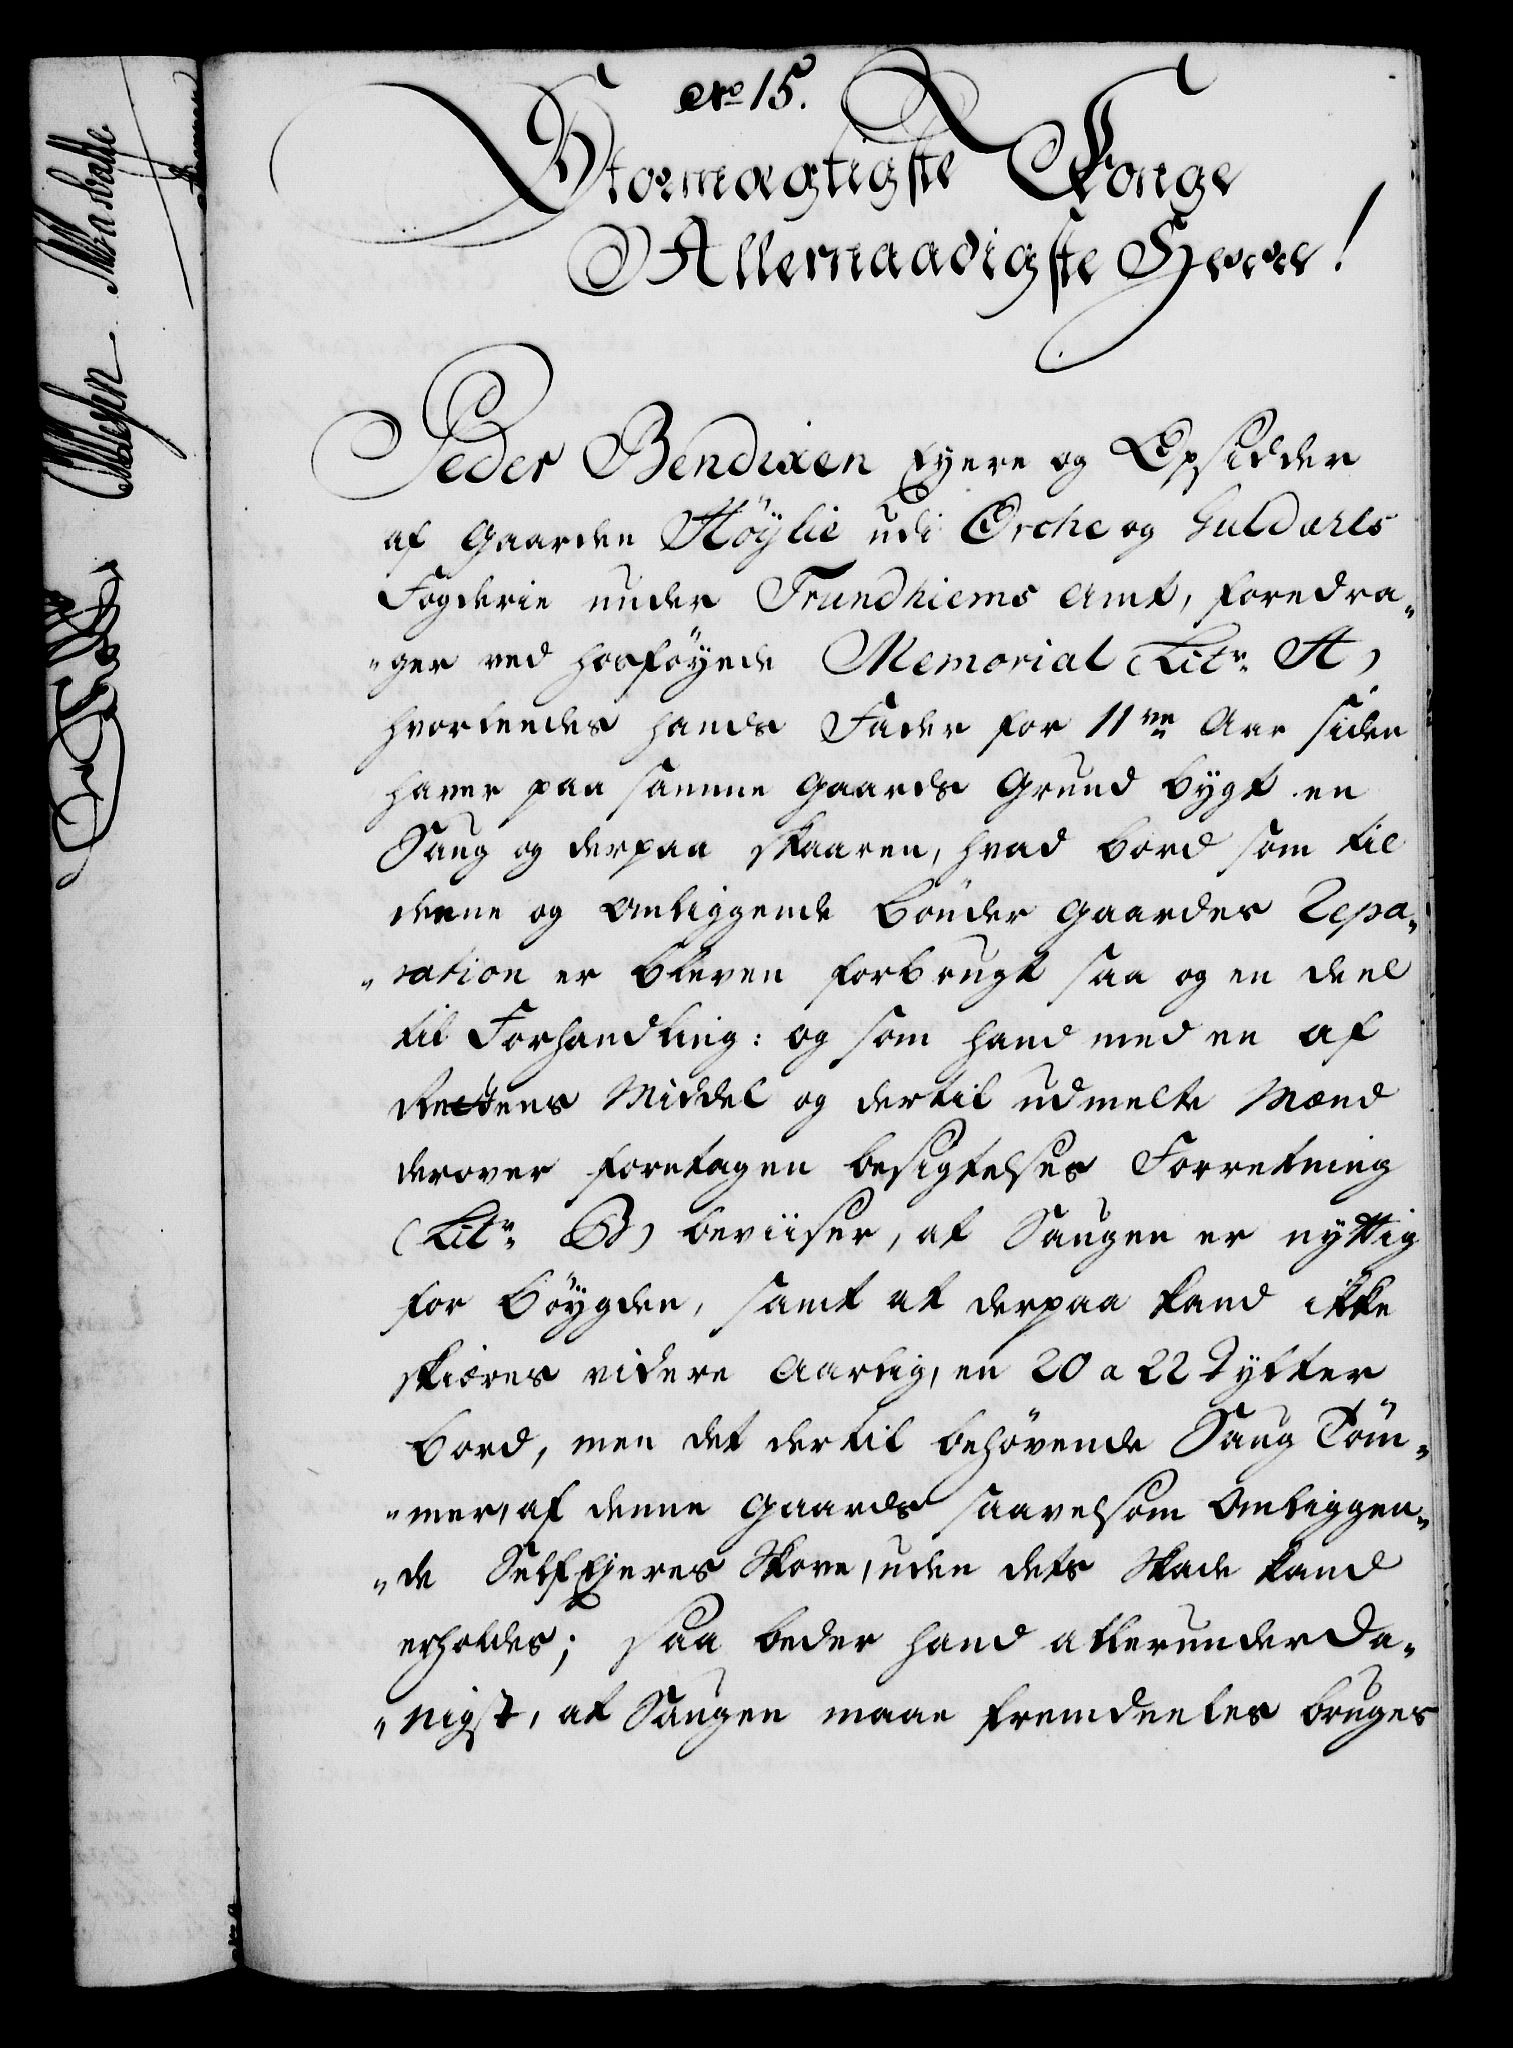 No 15.
Stormægtigste Konge
Allernaadigste Herre!
Peder Bendixen Eyere og Opsidder
af Gaarden Höylie udi Orche og Guldarls
Fogderie under Trundhiems Amt, foredra-
-ger ved hosföyede Memorial (Litr: A)
hvorledes hands Fader for 11ve Aar siden
haver paa samme Gaards Grund bygt en
Saug og derpaa skaaren, hvad bord som til
denne og omliggende bönder Gaardes Repa-
-ration er bleven forbrugt saa og en deel
til Forhandling: og som hand med en af
Rettens Middel og dertil udmelte Mænd
derover foretagen besigtelses Forretning
(Litr: B) beviiser, at Saugen er nyttig
for böygden, samt at derpaa kand ikke
skiæres videre Aarlig, en 20 a 22 Tylter
bord, men det dertil behövende Saug Töm-
-mer, af denne Gaards saavelsom omliggen-
-de Selfejeres Skove, uden dets Skade kand
erholdes; saa beder hand allerunderda-
-nigst, at Saugen maae fremdeeles bruges